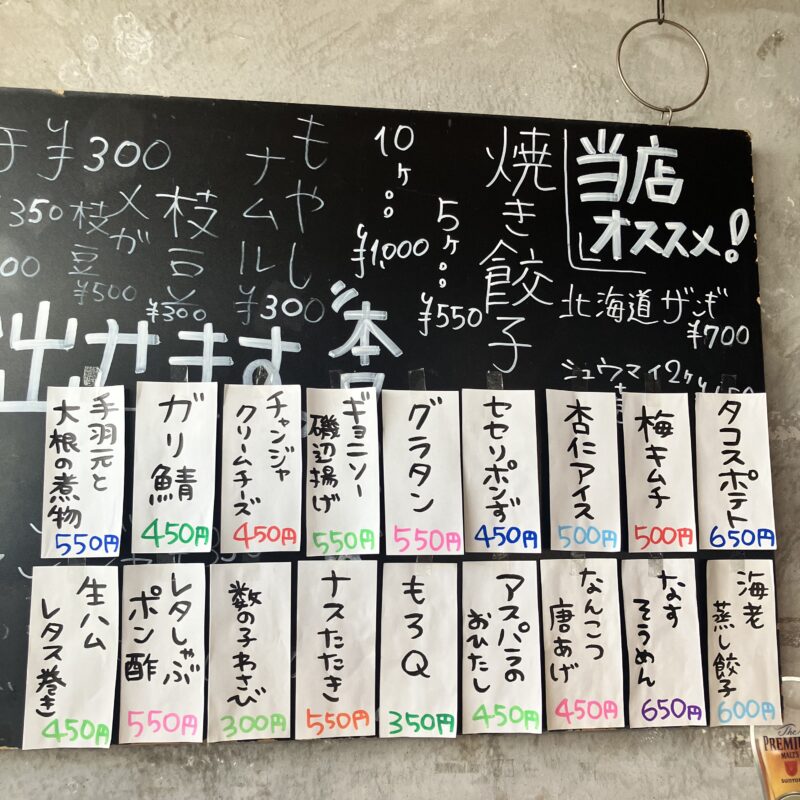 当店
オススメ!
北海道ザンギ
¥700
シュウマイ2ケ
焼き餃子
5ケ
¥550
10ケ
¥1,000
もやし
ナムル
¥300
枝豆
¥300
メガ
枝豆
¥500
¥300
350
出せます。
タコスポテト
650円
梅キムチ
500円
杏仁アイス
500円
セセリポンず
450円
グラタン
550円
ギョニソー
磯辺揚げ
550円
チャンジャ
クリームチーズ
450円
ガリ鯖
450円
手羽元と
大根の煮物
550円
海老
蒸し餃子
600円
なす
そうめん
650円
なんこつ
唐あげ
450円
アスパラの
おひたし
450円
もろQ
350円
ナスたたき
550円
数の子わさび
300円
レタしゃぶ
ポン酢
550円
生ハム
レタス巻き
450円
The
PREMIU
MALT'S
SUNTORY